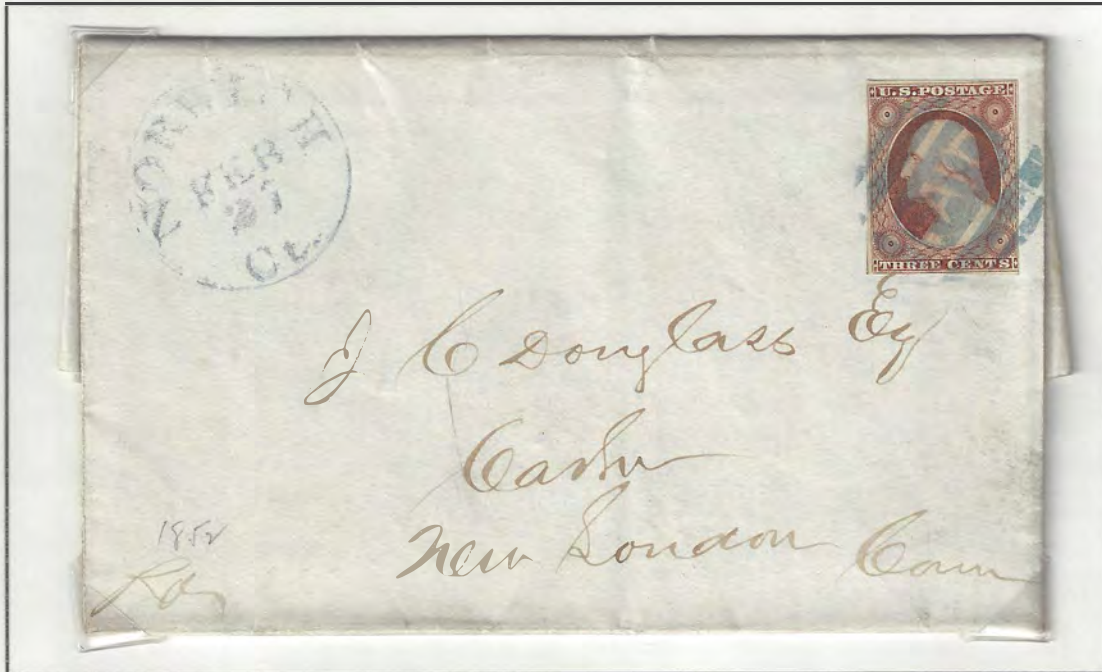 NORWICH
FEB
21
Ct.
U.S.POSTAGE
THREE CENTS
J C Douglass Eq
Cashr
New London Conn
1852